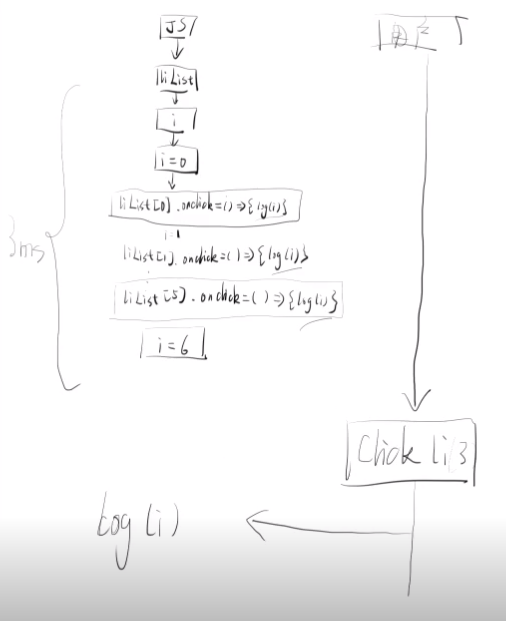 JS
用户
liList
i
i=0
3ms
liList[0].onclick=()=>{log(i)}
i=1
liList[1].onclick=()=>{log(i)}
liList[5].onclick=()=>{log(i)}
i=6
Click li3
log(i)